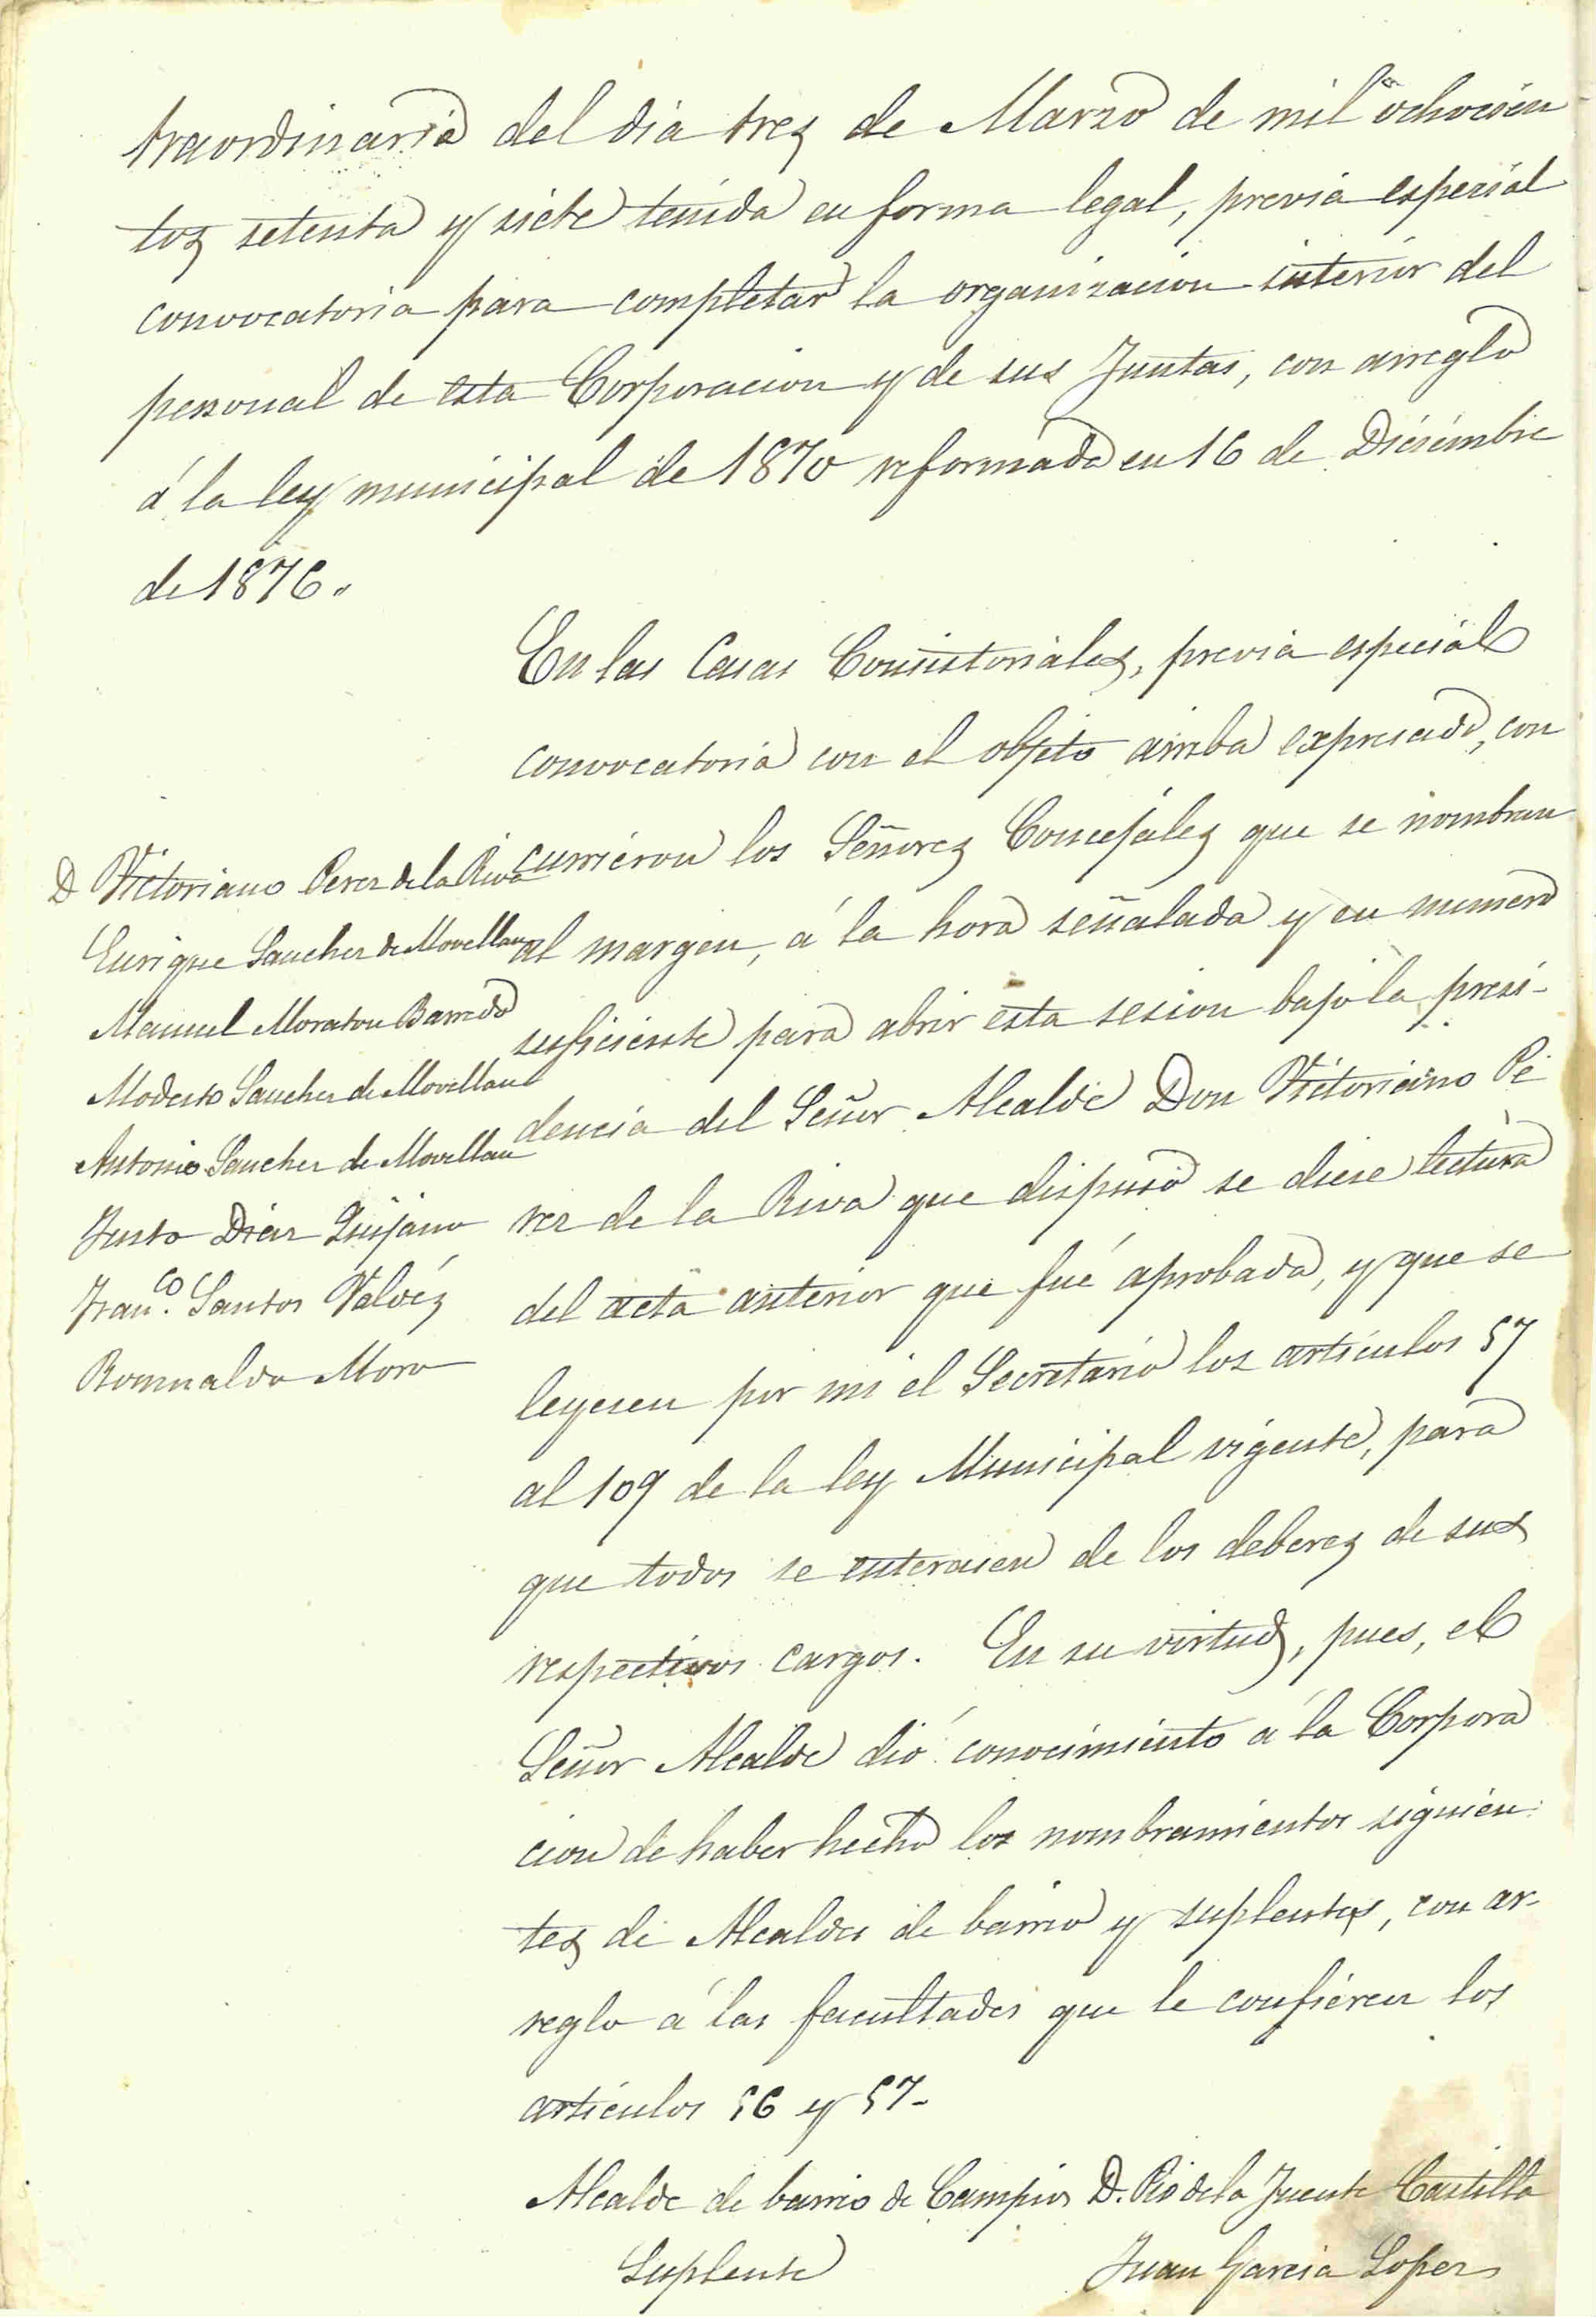 traordinaria del dia tres de Marzo de mil ochocien
tos setenta y siete tenida en forma legal, previa especial
convocatoria para completar la organizacion interior del
personal de esta Corporacion y de sus Juntas, con arreglo
á la ley municipal de 1870 reformada en 16 de Diciembre
de 1876.
En las Casas Consistoriales, previa especial
convocatoria con el objeto arriba expresado, con
currieron los Señores Concejales que se nombran
al margen, á la hora señalada y en numero
suficiente para abrir esta sesion bajo la presi-
dencia del Señor Alcalde Don Victoriano Pe
rez de la Riva que dispuso se diese lectura
del acta anterior que fué aprobada, y que se
leyesen por mi el Secretario los articulos 57
al 109 de la ley Municipal vigente, para
que todos se enterasen de los deberes de sus
respectivos cargos. En su virtud, pues, el
Señor Alcalde dió conocimiento á la Corpora
cion de haber hecho los nombramientos siguien
tes de Alcaldes de barrio y suplentes, con ar-
reglo á las facultades que le confieren los
articulos 56 y 57-
Alcalde de barrio de Campios D. Pio de la Fuente Castillo
Suplente Juan Garcia Lopez
D Victoriano Perez de la Riva
Enrique Sanchez de Movellan
Manuel Moraton Barredo
Modesto Sanchez de Movellan
Antonio Sanchez de Movellan
Justo Diaz Quijano
Fran.co Santos Valdéz
Romualdo Moro